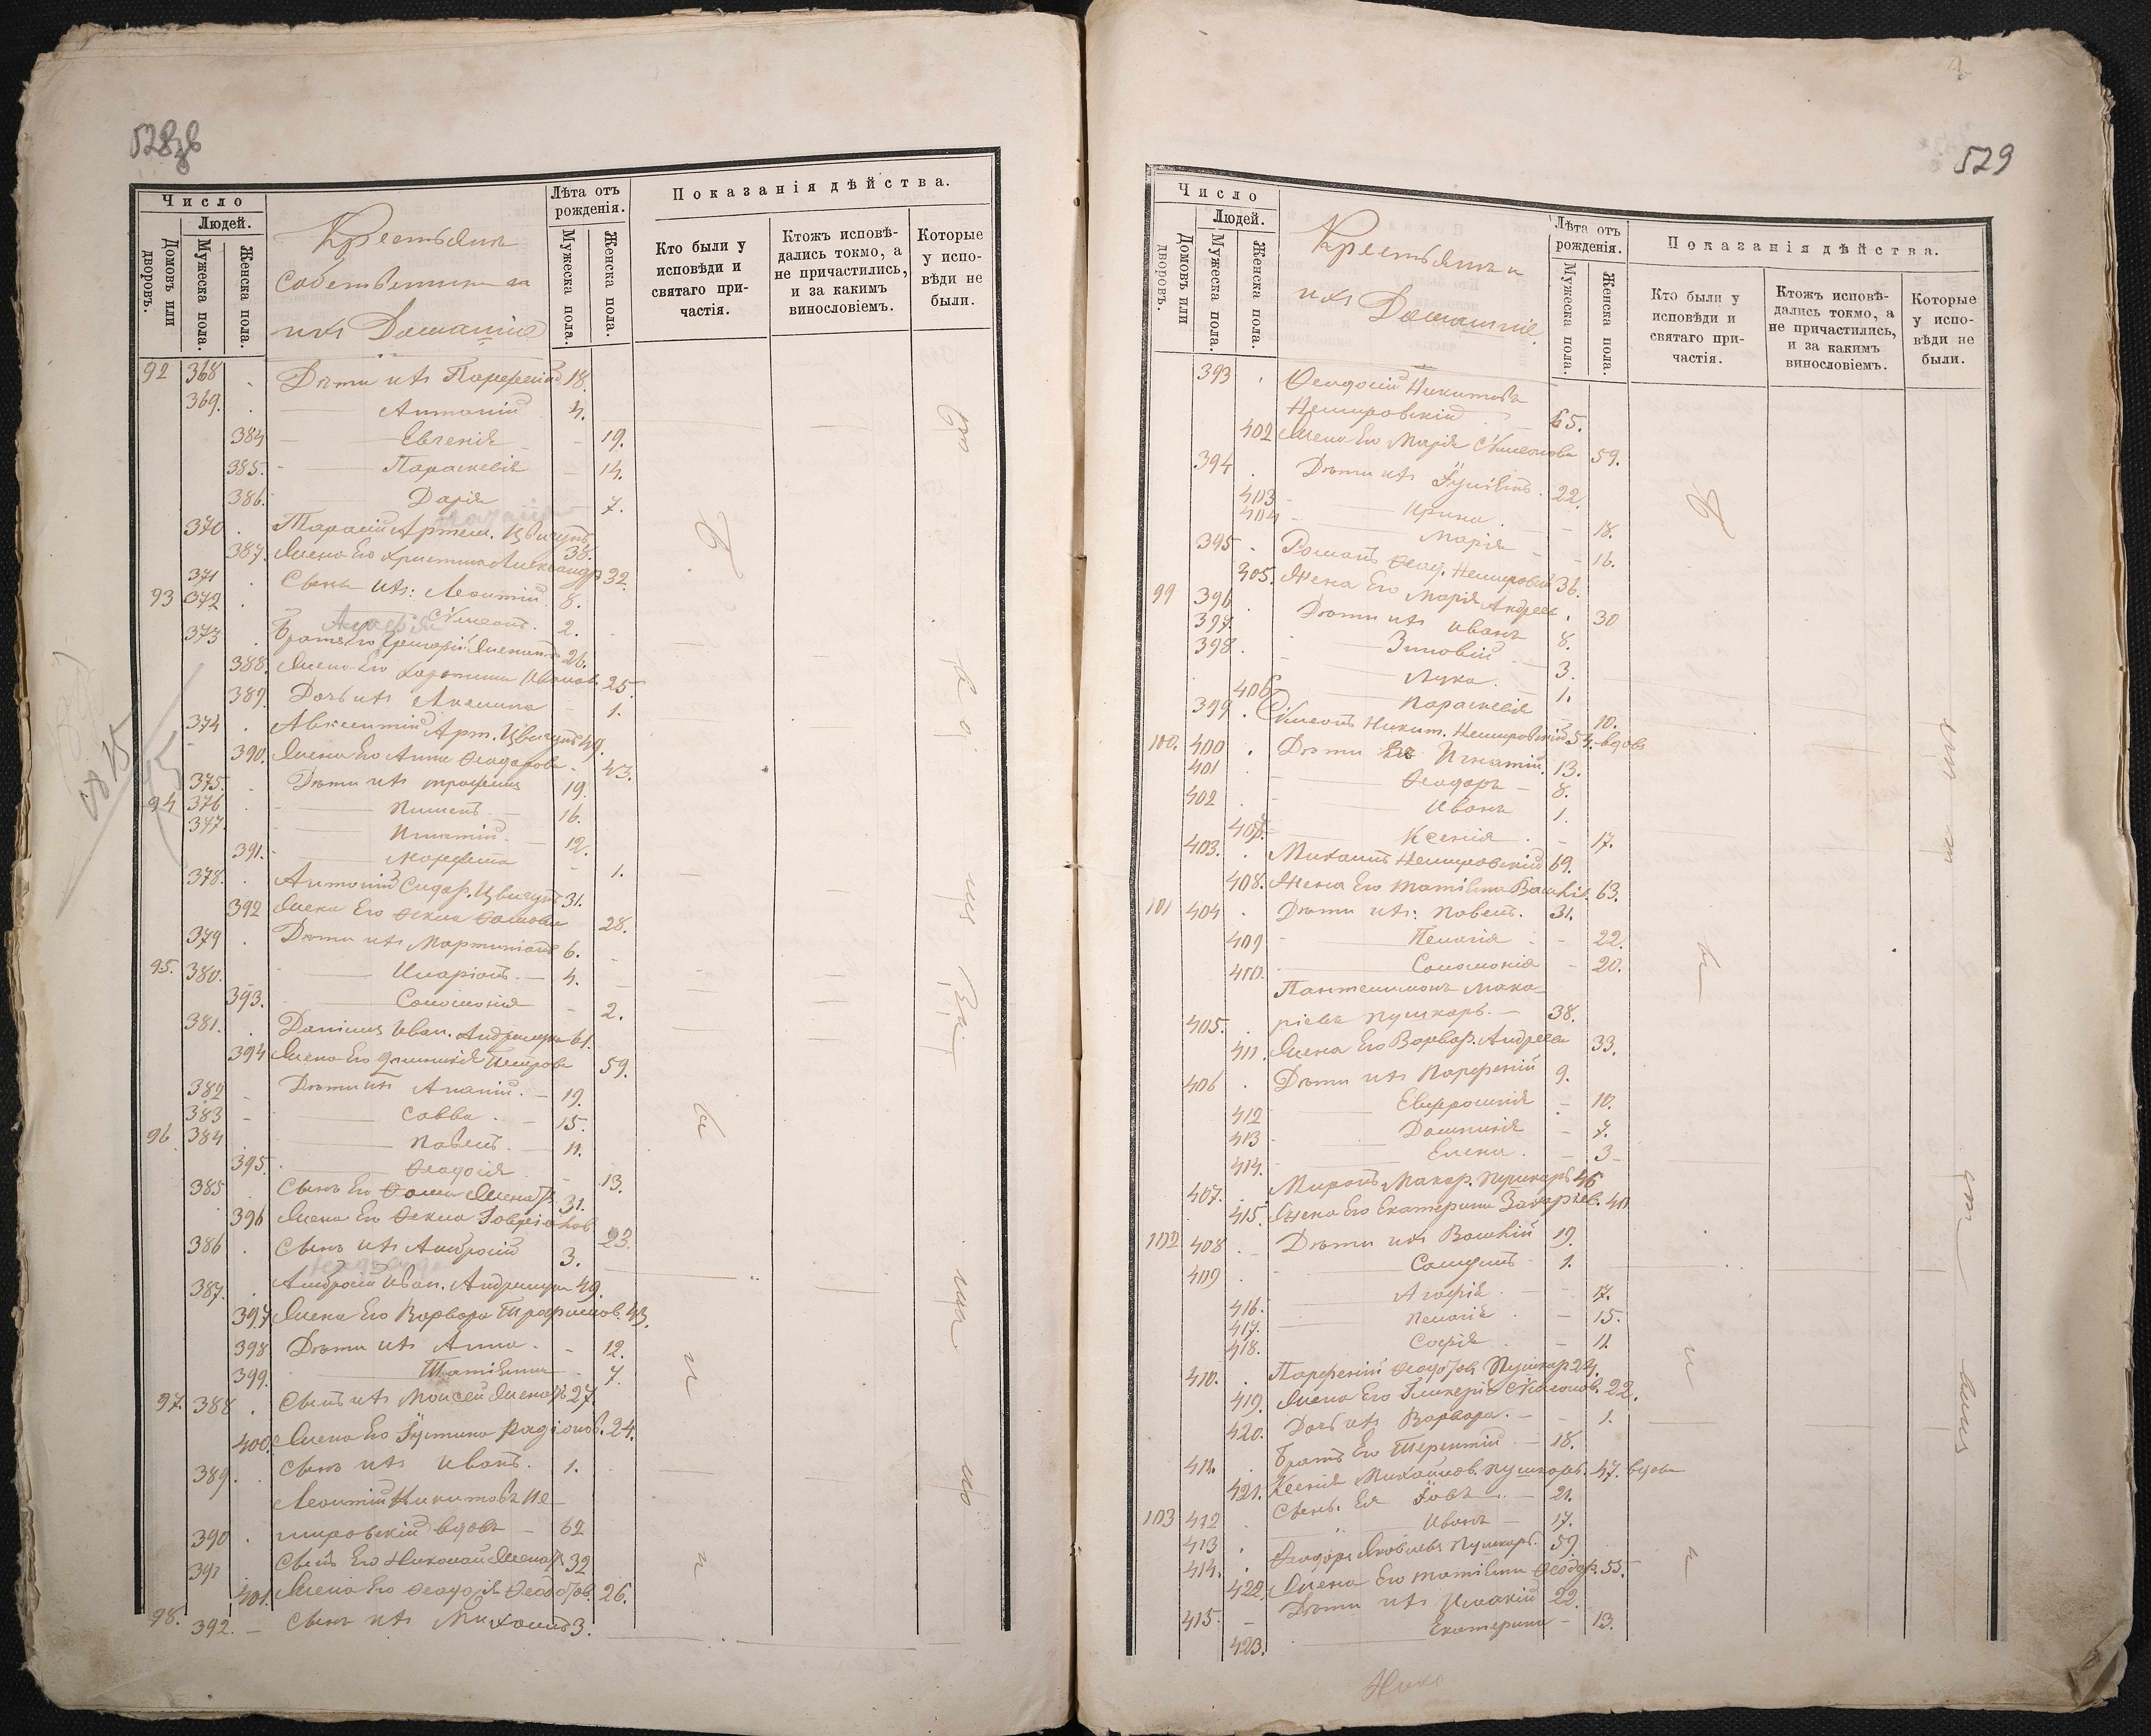 528зв
Число
Людей.
Домовъ или дворовъ.
Мужеска пола.
Женска пола.
Крестьяне
собственники и
ихъ Домашніе
Лѣта отъ рожденія.
Мужеска пола.
Женска пола.
Показанія дѣйства.
Кто были у исповѣди и святаго причастія.
Ктожъ исповѣдались токмо, а не причастились, и за какимъ винословіемъ.
Которые у исповѣди не были.
92 368 Дѣти ихъ Парфеній 18.
369. Антоній 4.
384 Евгенія 19.
385. Параскевія 14.
386. Дарія 7.
370 Тарасій Артем. Цвигунъ 38.
387. Жена Его Христина Александр. 32.
371 Сынъ ихъ: Леонтій 8.
93 372 Сѷмеонъ. 2.
373 Братъ Его Григорій Женатъ 26.
388. Жена Его Харитина Иванов. 25.
389. Дочь ихъ Акилина 1.
374 Авксентій Арт. Цвигунъ 49.
390. Жена Его Анна Ѳеодорова 43.
375. Дѣти ихъ Трофимъ 19.
94 376 Пименъ. 16.
377. Игнатій 12.
391. Марѳа 1.
378. Антоній Сидор. Цвигунъ 31.
392 Жена Его Ѳекла Ѳомова 28.
379 Дѣти ихъ Мартиніанъ 6.
95. 380. Иларіонъ 4.
393. Соломонія 2.
381. Даніилъ Иван. Андрощук 61.
394 Жена Его Домникія Петрова 59.
382 Дѣти ихъ Ананій. 19.
383 Савва. 15.
96 384 Павелъ. 11.
395. Ѳеодосія 13.
385 Сынъ Его Ѳома Женатъ 31.
396 Жена Его Ѳекла Гавріилов 23.
386 Сынъ ихъ Амвросій 3.
387. Амвросій Иван. Андрощук 49.
397 Жена Его Варвара Трофимов. 43.
398 Дѣти ихъ Анна. 12.
399. Татіана 7.
97. 388 Сынъ ихъ Моисей Женатъ 27.
400. Жена Его Іустина Радіонов. 24.
389. Сынъ ихъ Иванъ. 1.
Леонтій Никитовъ Не-
390 мировскій вдовъ 62
391 Сынъ Его Николай Женатъ 32
401. Жена Его Ѳеодосія Ѳеодотов. 26.
98. 392. Сынъ ихъ Михаилъ 3.
529
Число
Людей.
Домовъ или дворовъ.
Мужеска пола.
Женска пола.
Крестьяне и
ихъ Домашніе.
Лѣта отъ рожденія.
Мужеска пола.
Женска пола.
Показанія дѣйства.
Кто были у исповѣди и святаго причастія.
Ктожъ исповѣдались токмо, а не причастились, и за какимъ винословіемъ.
Которые у исповѣди не были.
393 Ѳеодосій Никитовъ
Немировскій 65.
402 Жена Его Марія Сѷмеонова 59.
394 Дѣти ихъ Іуліанъ. 22.
403 Ирина. 18.
404 Марія 16.
395 Романъ Ѳеод. Немировскій 36.
405. Жена Его Марія Андреев. 30
99 396 Дѣти ихъ Иванъ 8.
397. Зиновій 3.
398. Лука. 1.
406. Параскевія 10.
399. Сѷмеонъ Никит. Немировскій 54. вдовъ
100. 400 Дѣти Его Игнатій. 13.
401 Ѳеодоръ 8.
402 Иванъ 1.
407. Ксенія 17.
403. Михаилъ Немировскій 69.
408. Жена Его Татіана Васил. 63.
101 404 Дѣти ихъ: Павелъ. 31.
409 Пелагія 22.
410. Соломонія 20.
Пантелимонъ Мака-
405. ріевъ Пушкаръ. 38.
411. Жена Его Варвар. Андреева 33.
406 Дѣти ихъ Парфеній 9.
412 Евфросинія 10.
413 Домникія 7.
414. Елена. 3
407. Миронъ Макар. Пушкаръ 46
415. Жена Его Екатерина Захаріев. 40.
102 408 Дѣти ихъ Василій 19.
409 Самуилъ 1.
416. Агафія 17.
417. Пелагія 15.
418. Софія 11.
410. Парфеній Ѳеодотов. Пушкар 24.
419. Жена Его Гликерія Сѷмеонов. 22.
420. Дочь ихъ Варвара. 1.
411. Братъ Его Терентій 18.
421. Ксенія Михайлов. Пушкаръ. 47. вдова
103 412 Сынъ. Ея Іовъ 21.
413 Иванъ 17.
414. Ѳеодоръ Яковлевъ Пушкаръ. 59.
422. Жена Его Татіана Ѳеодор. 55.
415. Дѣти ихъ Исаакій 22.
423. Екатерина 13.